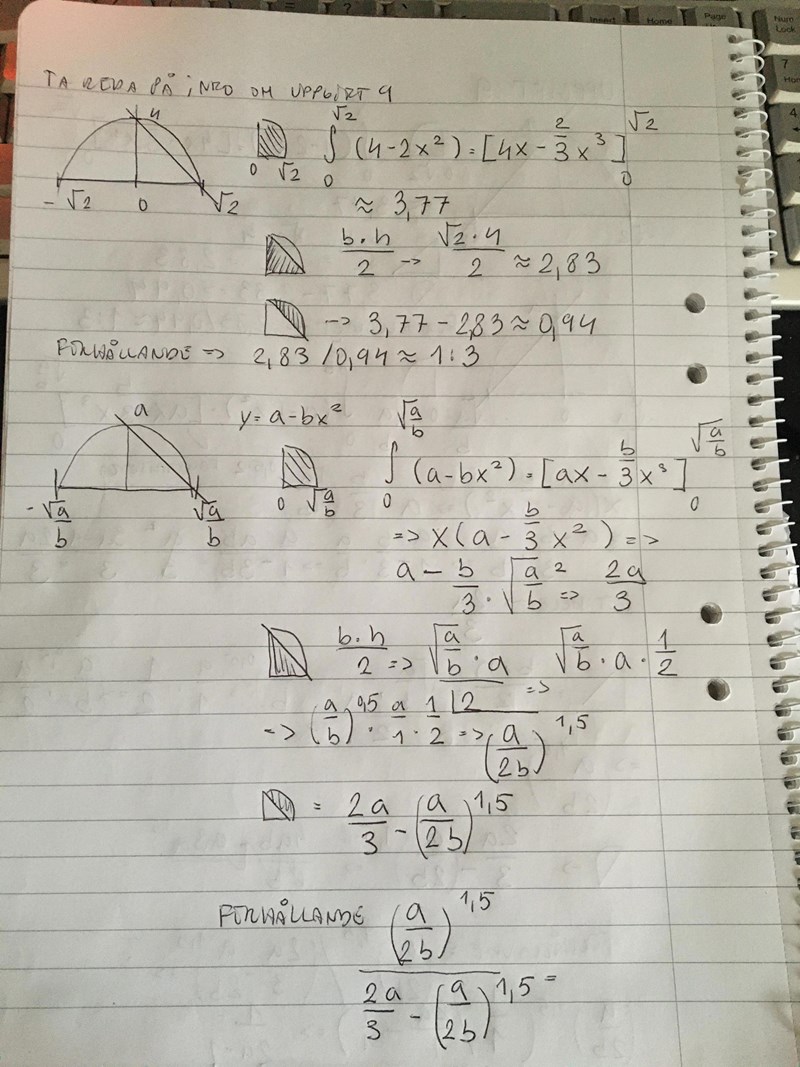 TA REDA PÅ INFO OM UPPGIFT 9
4
-√2 0 √2
0 √2 ∫₀^√2 (4-2x²) = [4x - 2/3 x³]₀^√2
≈ 3,77
b·h/2 -> √2·4/2 ≈ 2,83
-> 3,77 - 2,83 ≈ 0,94
FÖRHÅLLANDE => 2,83/0,94 ≈ 1:3
a
y = a-bx²
-√a/b √a/b
0 √a/b ∫₀^√a/b (a-bx²) = [ax - b/3 x³]₀^√a/b
=> x(a - b/3 x²) =>
a - b/3 · √a/b ² => 2a/3
b·h/2 => √a/b · a /2 => √a/b · a · 1/2
=> (a/b)^0,5 · a/1 · 1/2 => (a/2b)^1,5
= 2a/3 - (a/2b)^1,5
FÖRHÅLLANDE (a/2b)^1,5 / 2a/3 - (a/2b)^1,5 =
Insert Home Page Up
Num Lock
7
4